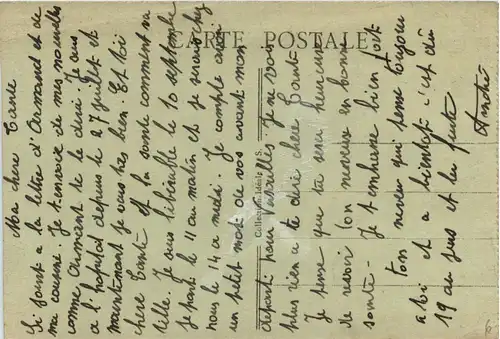 CARTE POSTALE
Collection Idéale P. S.
Ma chere Tante
Si joint a la lettre d'Armand et de
ma cousine. Je t'envoie de mes nouvelles
comme Armant te le dira Je suis
a l'hopital depuis le 27 juillet et
maintenant je vais très bien. Et toi
chere Tante et la santé comment va
t'elle. Je suis libérable le 10 septembre
je parti le 11 au matin et je serais chez
nous le 14 a midi. Je compte avoir
un petit mot de vos avant mon
départ pour Je ne vois
plus rien a te dire chere Tante
Je pense que tu sera heureuse
de revoir ton neveux en bonne
santé - Je t'embrasse bien fort
ton neveu qui pense toujour
a toi et a bientot c'est du
19 au jus et la fuite
André